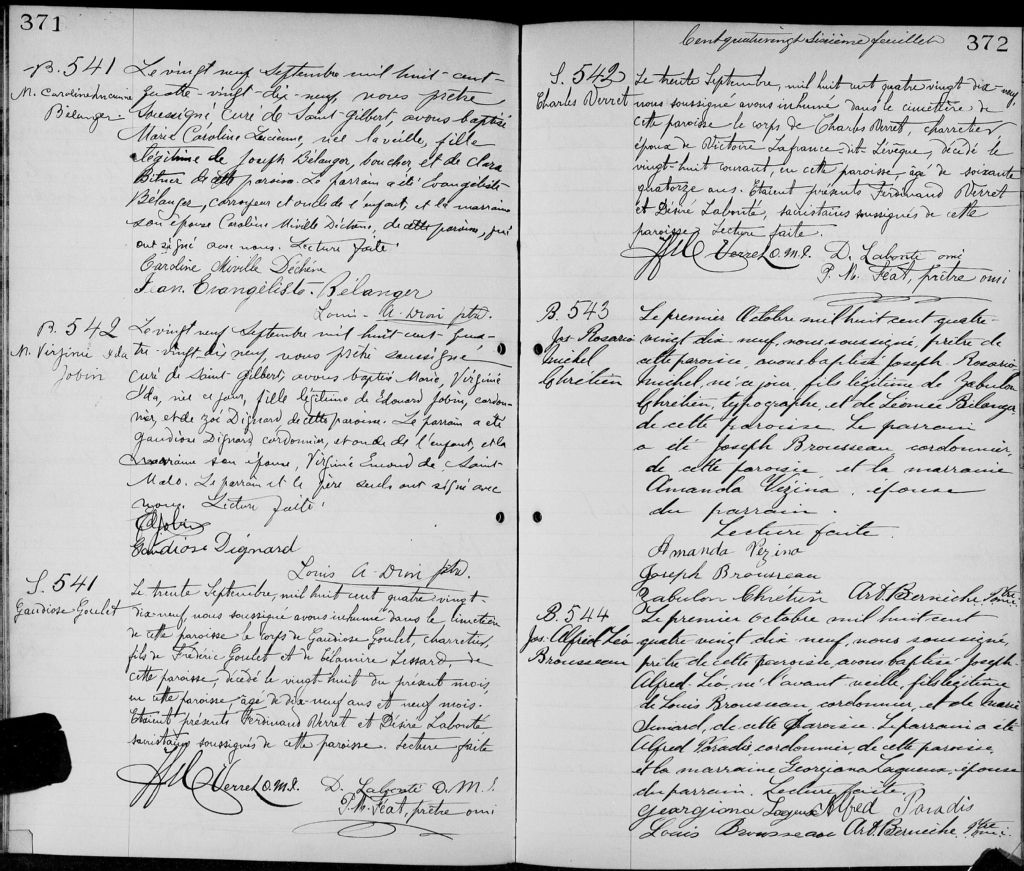 371
B. 541
M. Caroline Lucienne
Bélanger
Le vingt neuf Septembre mil huit-cent-
quatre-vingt-dix-neuf, nous prêtre
soussigné curé de Saint-Gilbert, avons baptisé
Marie Caroline Lucienne, née la veille, fille
légitime de Joseph Bélanger, boucher et de Clara
Bitner de cette paroisse. Le parrain a été Evangéliste
Bélanger, corroyeur et oncle de l'enfant, et la marraine
son épouse Caroline Miville Dechêne, de cette paroisse, qui
ont signé avec nous. Lecture faite
Caroline Miville Déchène
Jean Evangéliste Bélanger
Louis-A-Dion ptre.
B. 542
M. Virginie Ida
Jobin
Le vingt neuf Septembre mil huit cent-qua-
tre-vingt dix neuf, nous prêtre soussigné
curé de Saint-Gilbert, avons baptisé Marie, Virginie
Ida, née ce jour, fille légitime de Edouard Jobin, cordon-
nier, et de Zoé Dignard, de cette paroisse. Le parrain a été
Gaudiose Dignard cordonnier, et oncle de l'enfant, et la
marraine son épouse, Virginie Emond de Saint-
Malo. Le parrain et le père seuls ont signé avec
nous. Lecture faite.
E Jobin
Gaudiose Dignard
Louis A-Dion ptre.
S. 541
Gaudiose Goulet
Le trente Septembre, mil huit cent quatre vingt-
dix-neuf, nous soussigné avons inhumé dans le cimetière
de cette paroisse le corps de Gaudiose Goulet, charretier,
fils de Frédéric Goulet et de Zélamire Lessard, de
cette paroisse, décédé le vingt huit du présent mois,
en cette paroisse, âgé de dix-neuf ans et neuf mois.
Etaient présents Ferdinand Verret et Désiré Labonté
sacristains soussignés de cette paroisse. Lecture faite
Verret O.M.I. D. Labonté O.M.I.
P. M. Féat, prêtre omi
Cent quatre vingt sixième feuillet
372
S. 542
Charles Verret
Le trente Septembre, mil huit cent quatre vingt dix-neuf,
nous soussigné avons inhumé dans le cimetière de
cette paroisse le corps de Charles Verret, charretier
époux de Victoire Lafrance-dit-Lévêque, décédé le
vingt-huit courant, en cette paroisse, âgé de soixante
quatorze ans. Etaient présents Ferdinand Verret
et Désiré Labonté, sacristains soussignés de cette
paroisse. Lecture faite.
Verret O.M.I. D. Labonté omi
P. M. Féat, prêtre omi
B. 543
Jos. Rosario
Michel
Chrétien
Le premier Octobre mil huit cent quatre-
vingt dix neuf, nous soussigné, prêtre de
cette paroisse, avons baptisé Joseph Rosario
Michel, né ce jour, fils légitime de Zabulon
Chrétien, typographe, et de Léonie Bélanger
de cette paroisse. Le parrain
a été Joseph Brousseau cordonnier,
de cette paroisse et la marraine
Amanda Vézina, épouse
du parrain.
Lecture faite.
Amanda Vezina
Joseph Brousseau
Zabulon Chretien Art. Bernèche, Ptre omi.
B. 544
Jos. Alfred Léo
Brousseau
Le premier Octobre mil huit cent
quatre vingt dix neuf, nous soussigné,
prêtre de cette paroisse, avons baptisé Joseph-
Alfred-Léo, né l'avant veille, fils légitime
de Louis Brousseau, cordonnier, et de Marie
Simard, de cette paroisse. Le parrain a été
Alfred Paradis, cordonnier, de cette paroisse,
et la marraine Georgiana Lagueux, épouse
du parrain. Lecture faite.
Georgiana Lagueux Alfred Paradis
Louis Brousseau Art. Bernèche, Ptre omi.